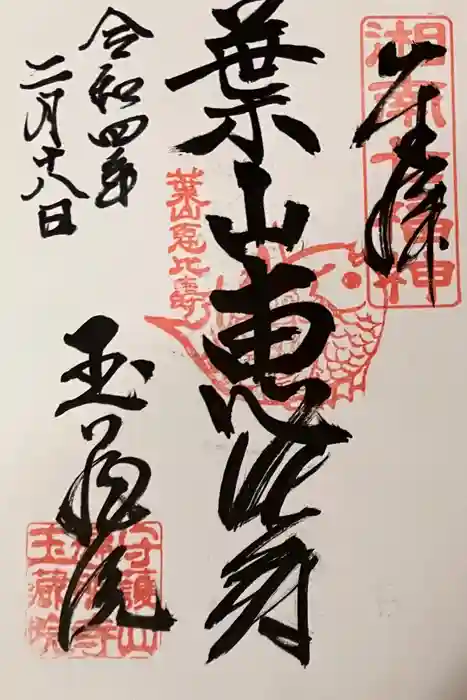 奉拝
湘南七福神
葉山恵比寿
葉山恵比寿
令和四年
二月十八日
玉蔵院
守護山
玉蔵院